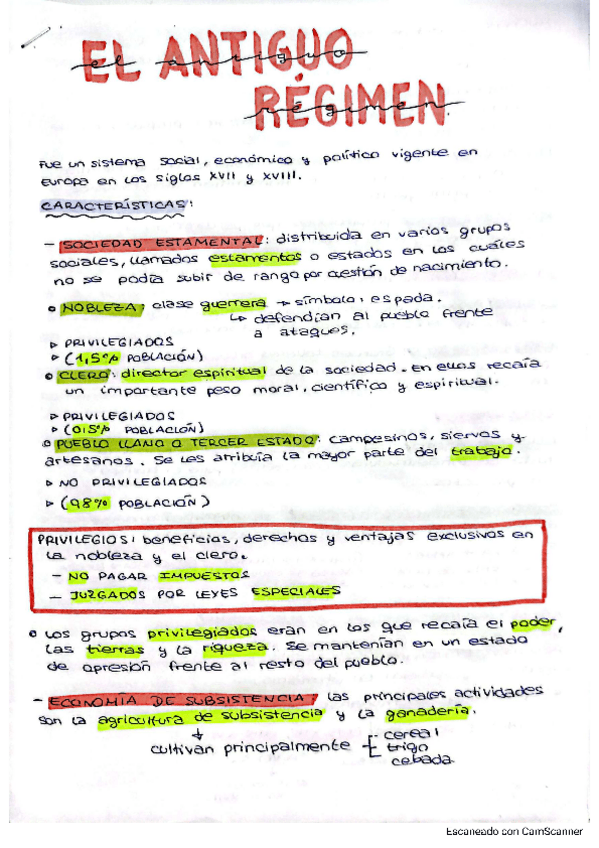 EL ANTIGUO
RÉGIMEN
Fue un sistema social, económico y político vigente en
Europa en los siglos XVII y XVIII.
CARACTERÍSTICAS:
- SOCIEDAD ESTAMENTAL: distribuida en varios grupos
sociales, llamados estamentos o estados en los cuáles
no se podía subir de rango por cuestión de nacimiento.
NOBLEZA: clase guerrera → símbolo: espada.
↳ defendían al pueblo frente
a ataques.
▹ PRIVILEGIADOS
▹ (1,5% POBLACIÓN)
CLERO: director espiritual de la sociedad. en ellos recaía
un importante peso moral, científico y espiritual.
▹ PRIVILEGIADOS
▹ (0,5% POBLACIÓN)
PUEBLO LLANO O TERCER ESTADO: campesinos, siervos y
artesanos. Se les atribuía la mayor parte del trabajo.
▹ NO PRIVILEGIADOS
▹ (98% POBLACIÓN)
PRIVILEGIOS: beneficias, derechos y ventajas exclusivos en
la nobleza y el clero.
- NO PAGAR IMPUESTOS
- JUZGADOS POR LEYES ESPECIALES
Los grupos privilegiados eran en los que recaía el poder,
las tierras y la riqueza. Se mantenían en un estado
de opresión frente al resto del pueblo.
- ECONOMÍA DE SUBSISTENCIA: las principales actividades
son la agricultura de subsistencia y la ganadería.
↓
cultivan principalmente cereal
trigo
cebada
Escaneado con CamScanner